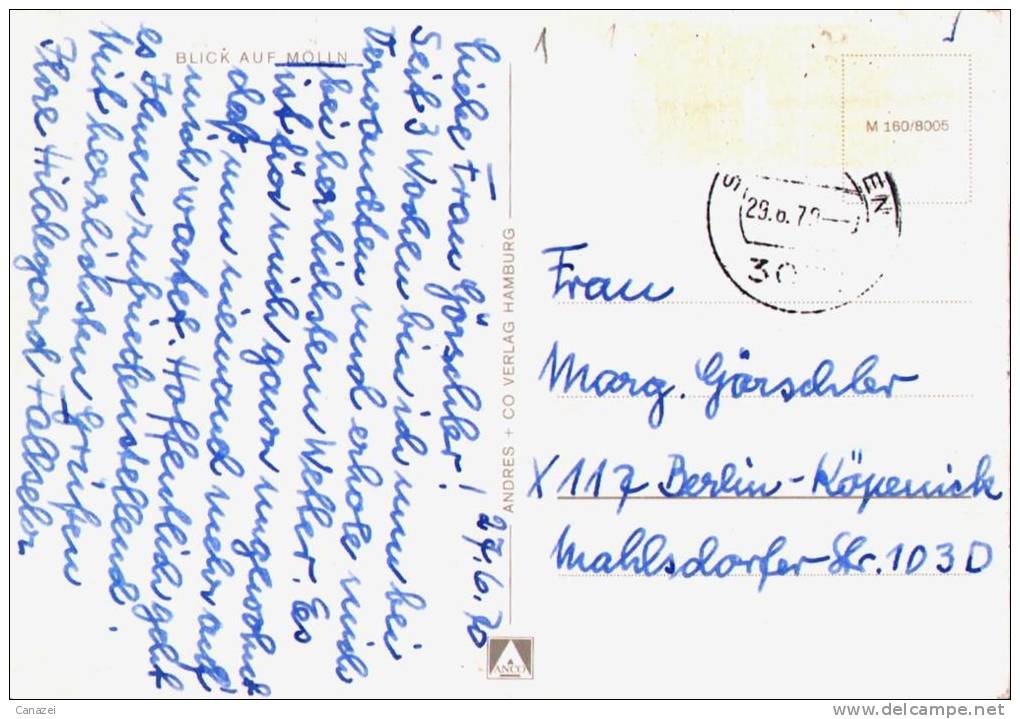 BLICK AUF MÖLLN
27.6.70
Liebe Frau Görschler!
Seit 3 Wochen bin ich nun bei
Verwandten und erhole mich
bei herrlichstem Wetter. Es
ist für mich ganz ungewohnt
daß nun niemand mehr auf
mich wartet. Hoffentlich geht
es Ihnen zufriedenstellend.
Mit herzlichsten Grüßen
Ihre Hildegard
ANDRES + CO VERLAG HAMBURG
ANCO
M 160/8005
EN
29.6.70
30
Frau
Marg. Görschler
X 117 Berlin-Köpenick
Mahlsdorfer-Str. 103 D
Canazei
www.delcampe.net